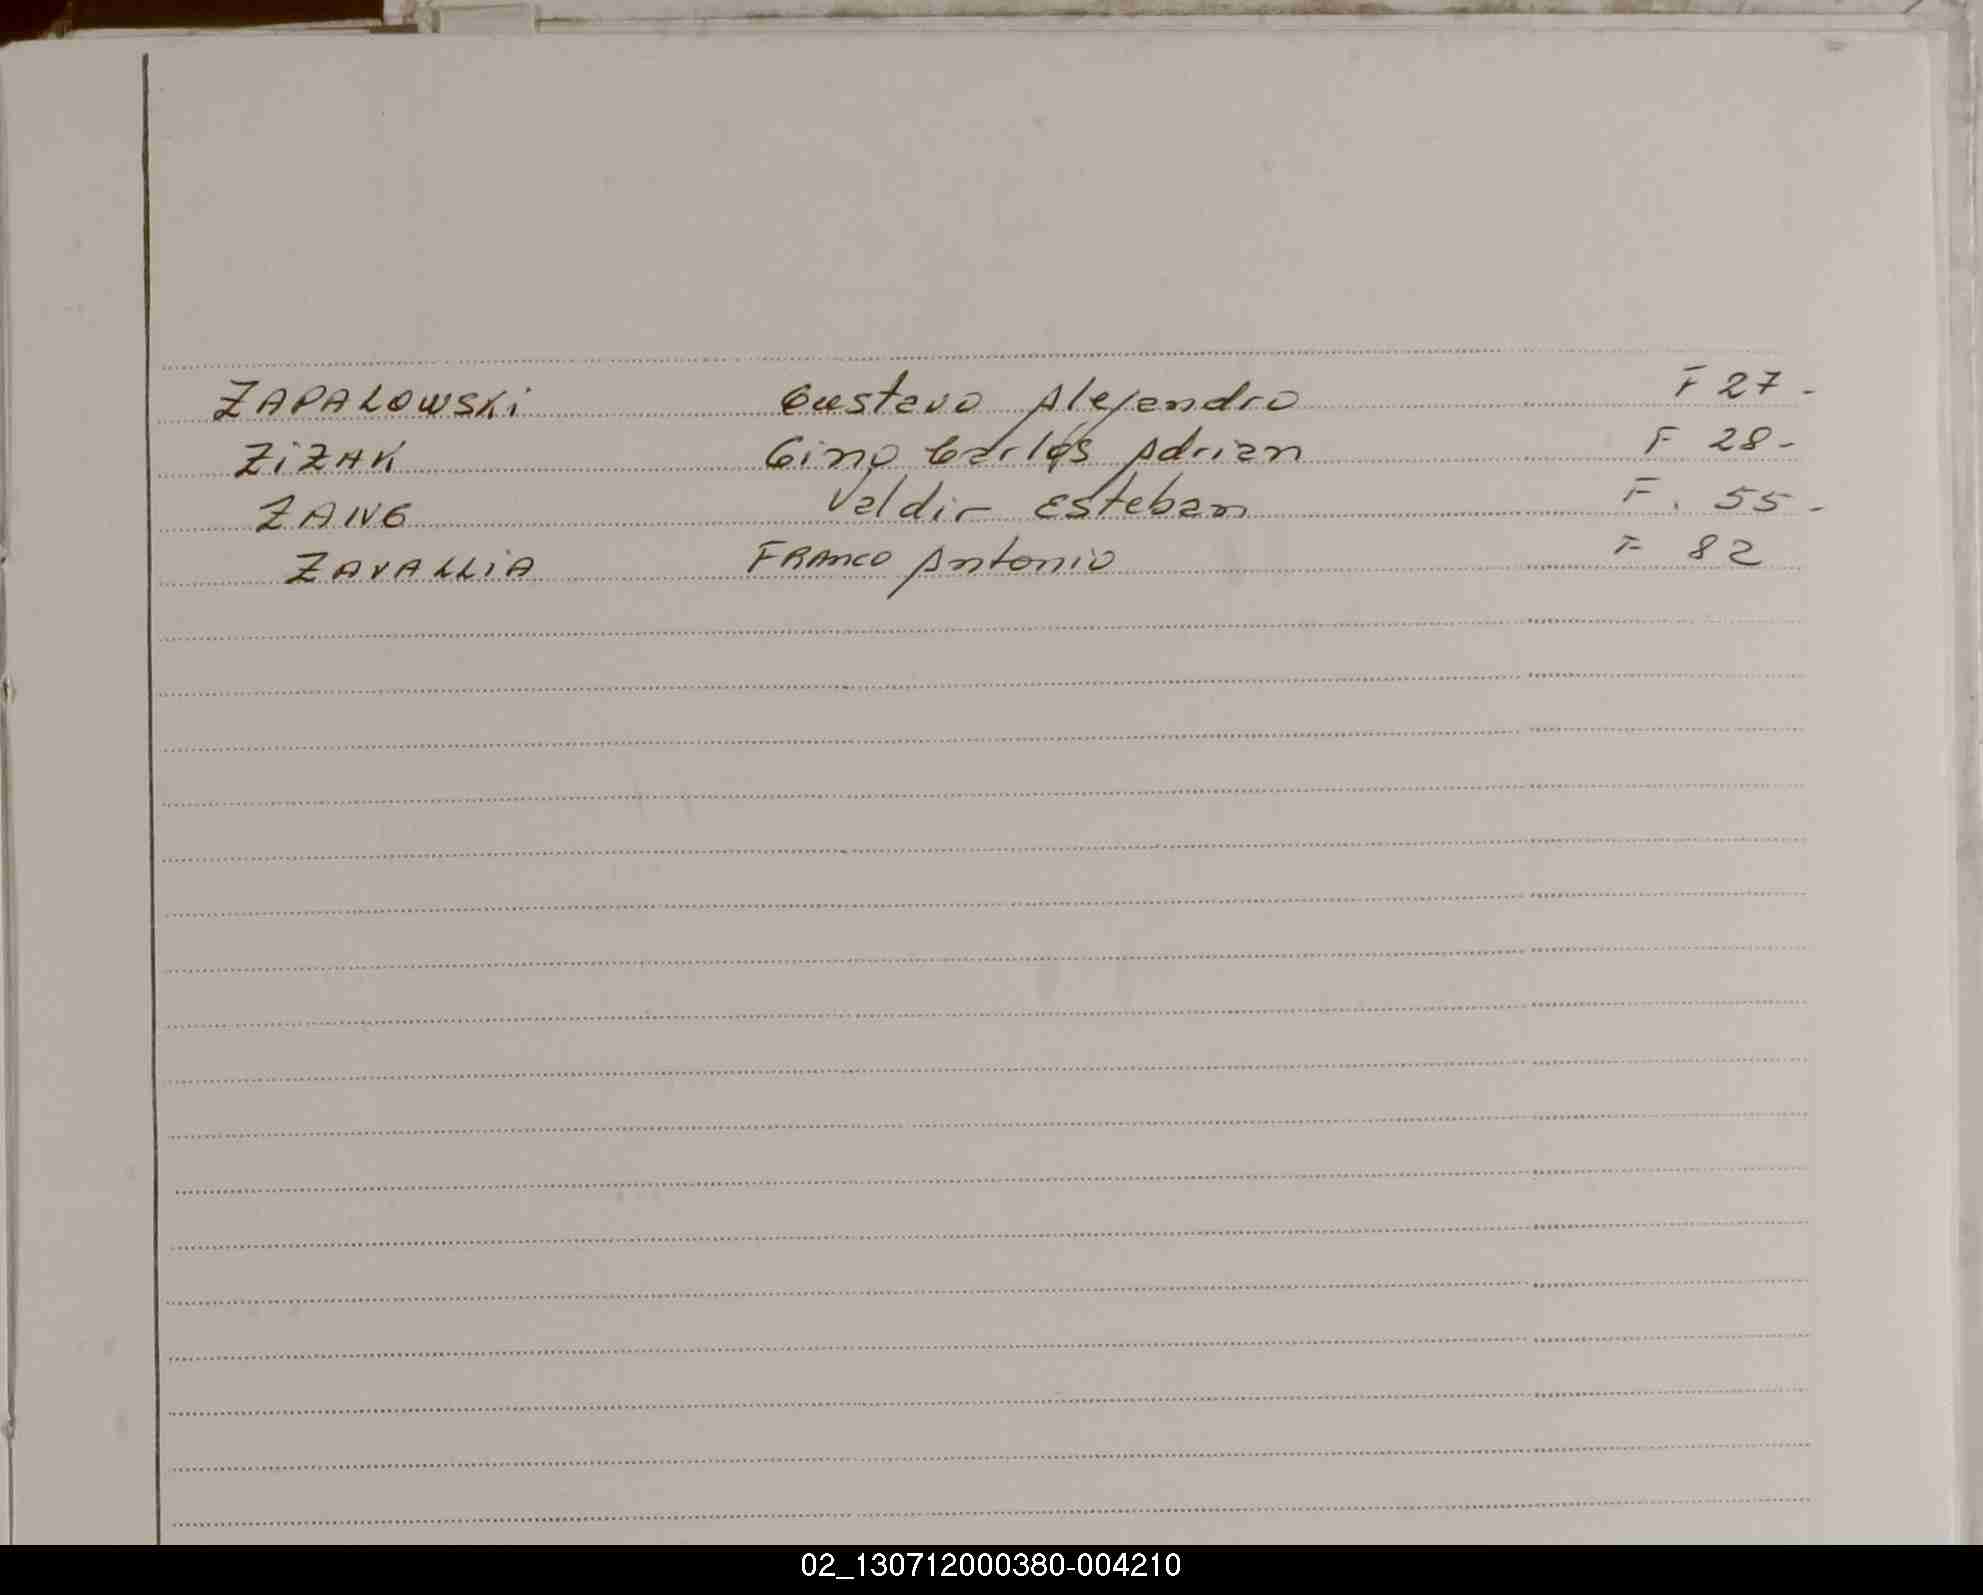 ZAPALOWSKi Gustavo Alejandro F 27-
ZiZAK Gino Carlos Adrian F 28-
ZANG Valdir Esteban F. 55-
ZAVALLiA FRANCO Antonio F 82
02_130712000380-004210